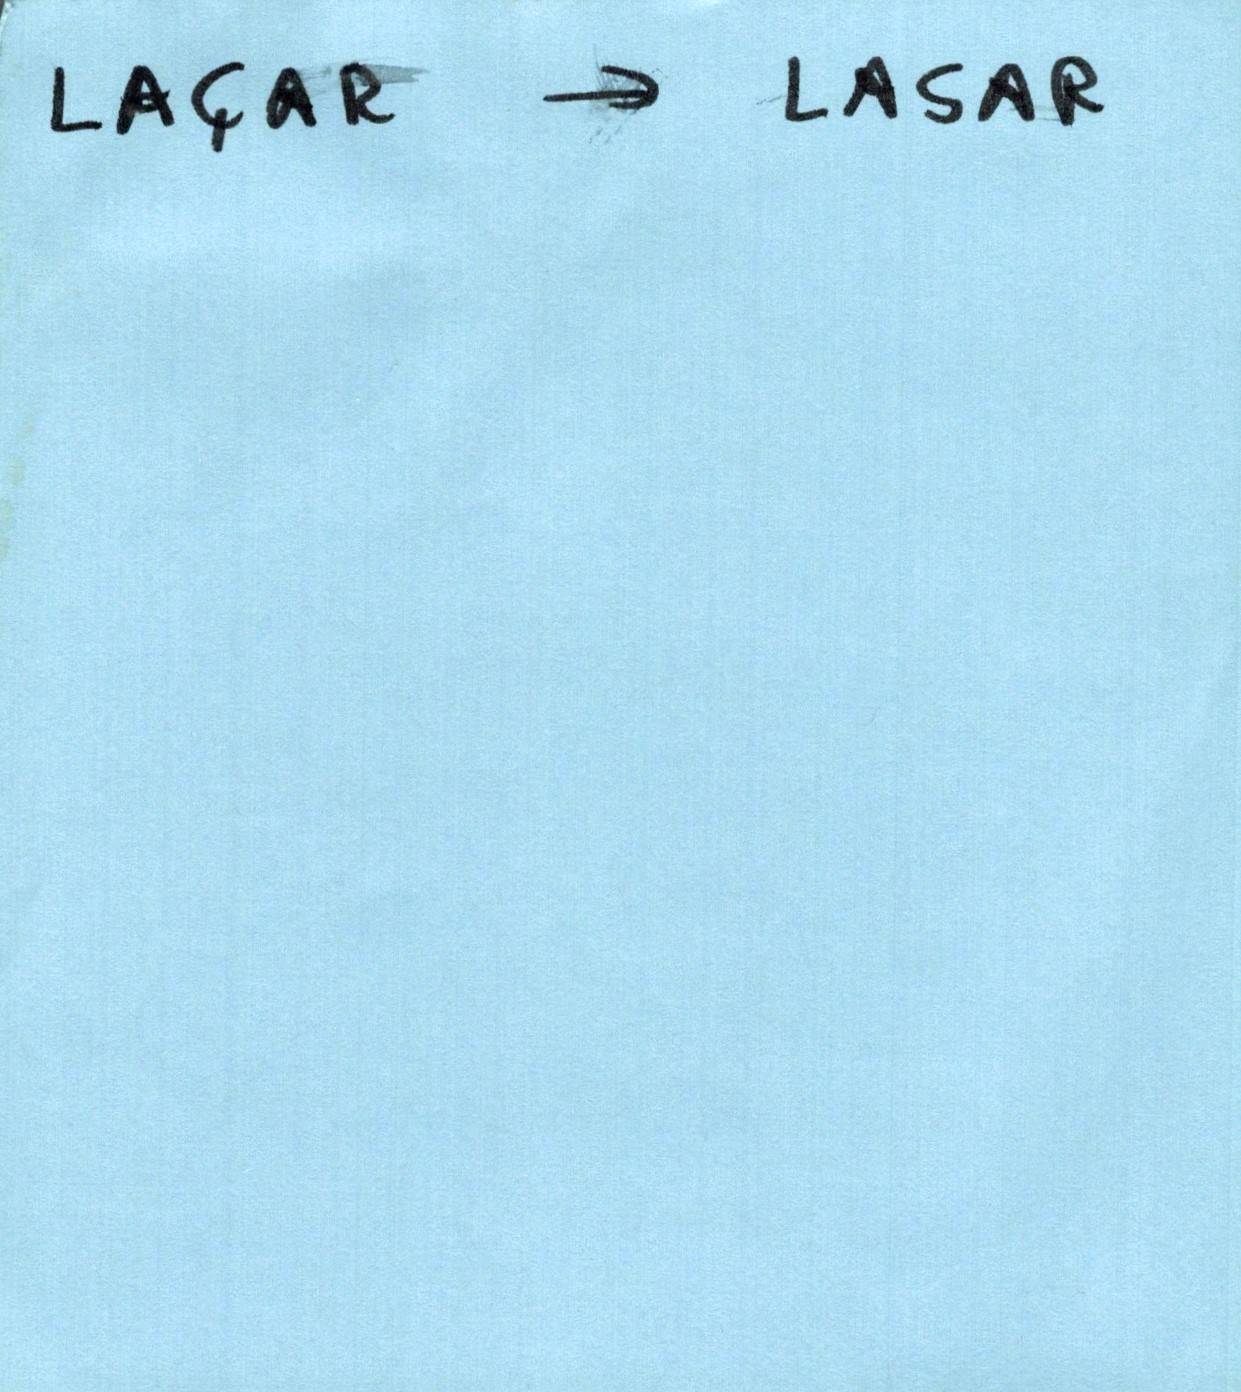 LAÇAR → LASAR